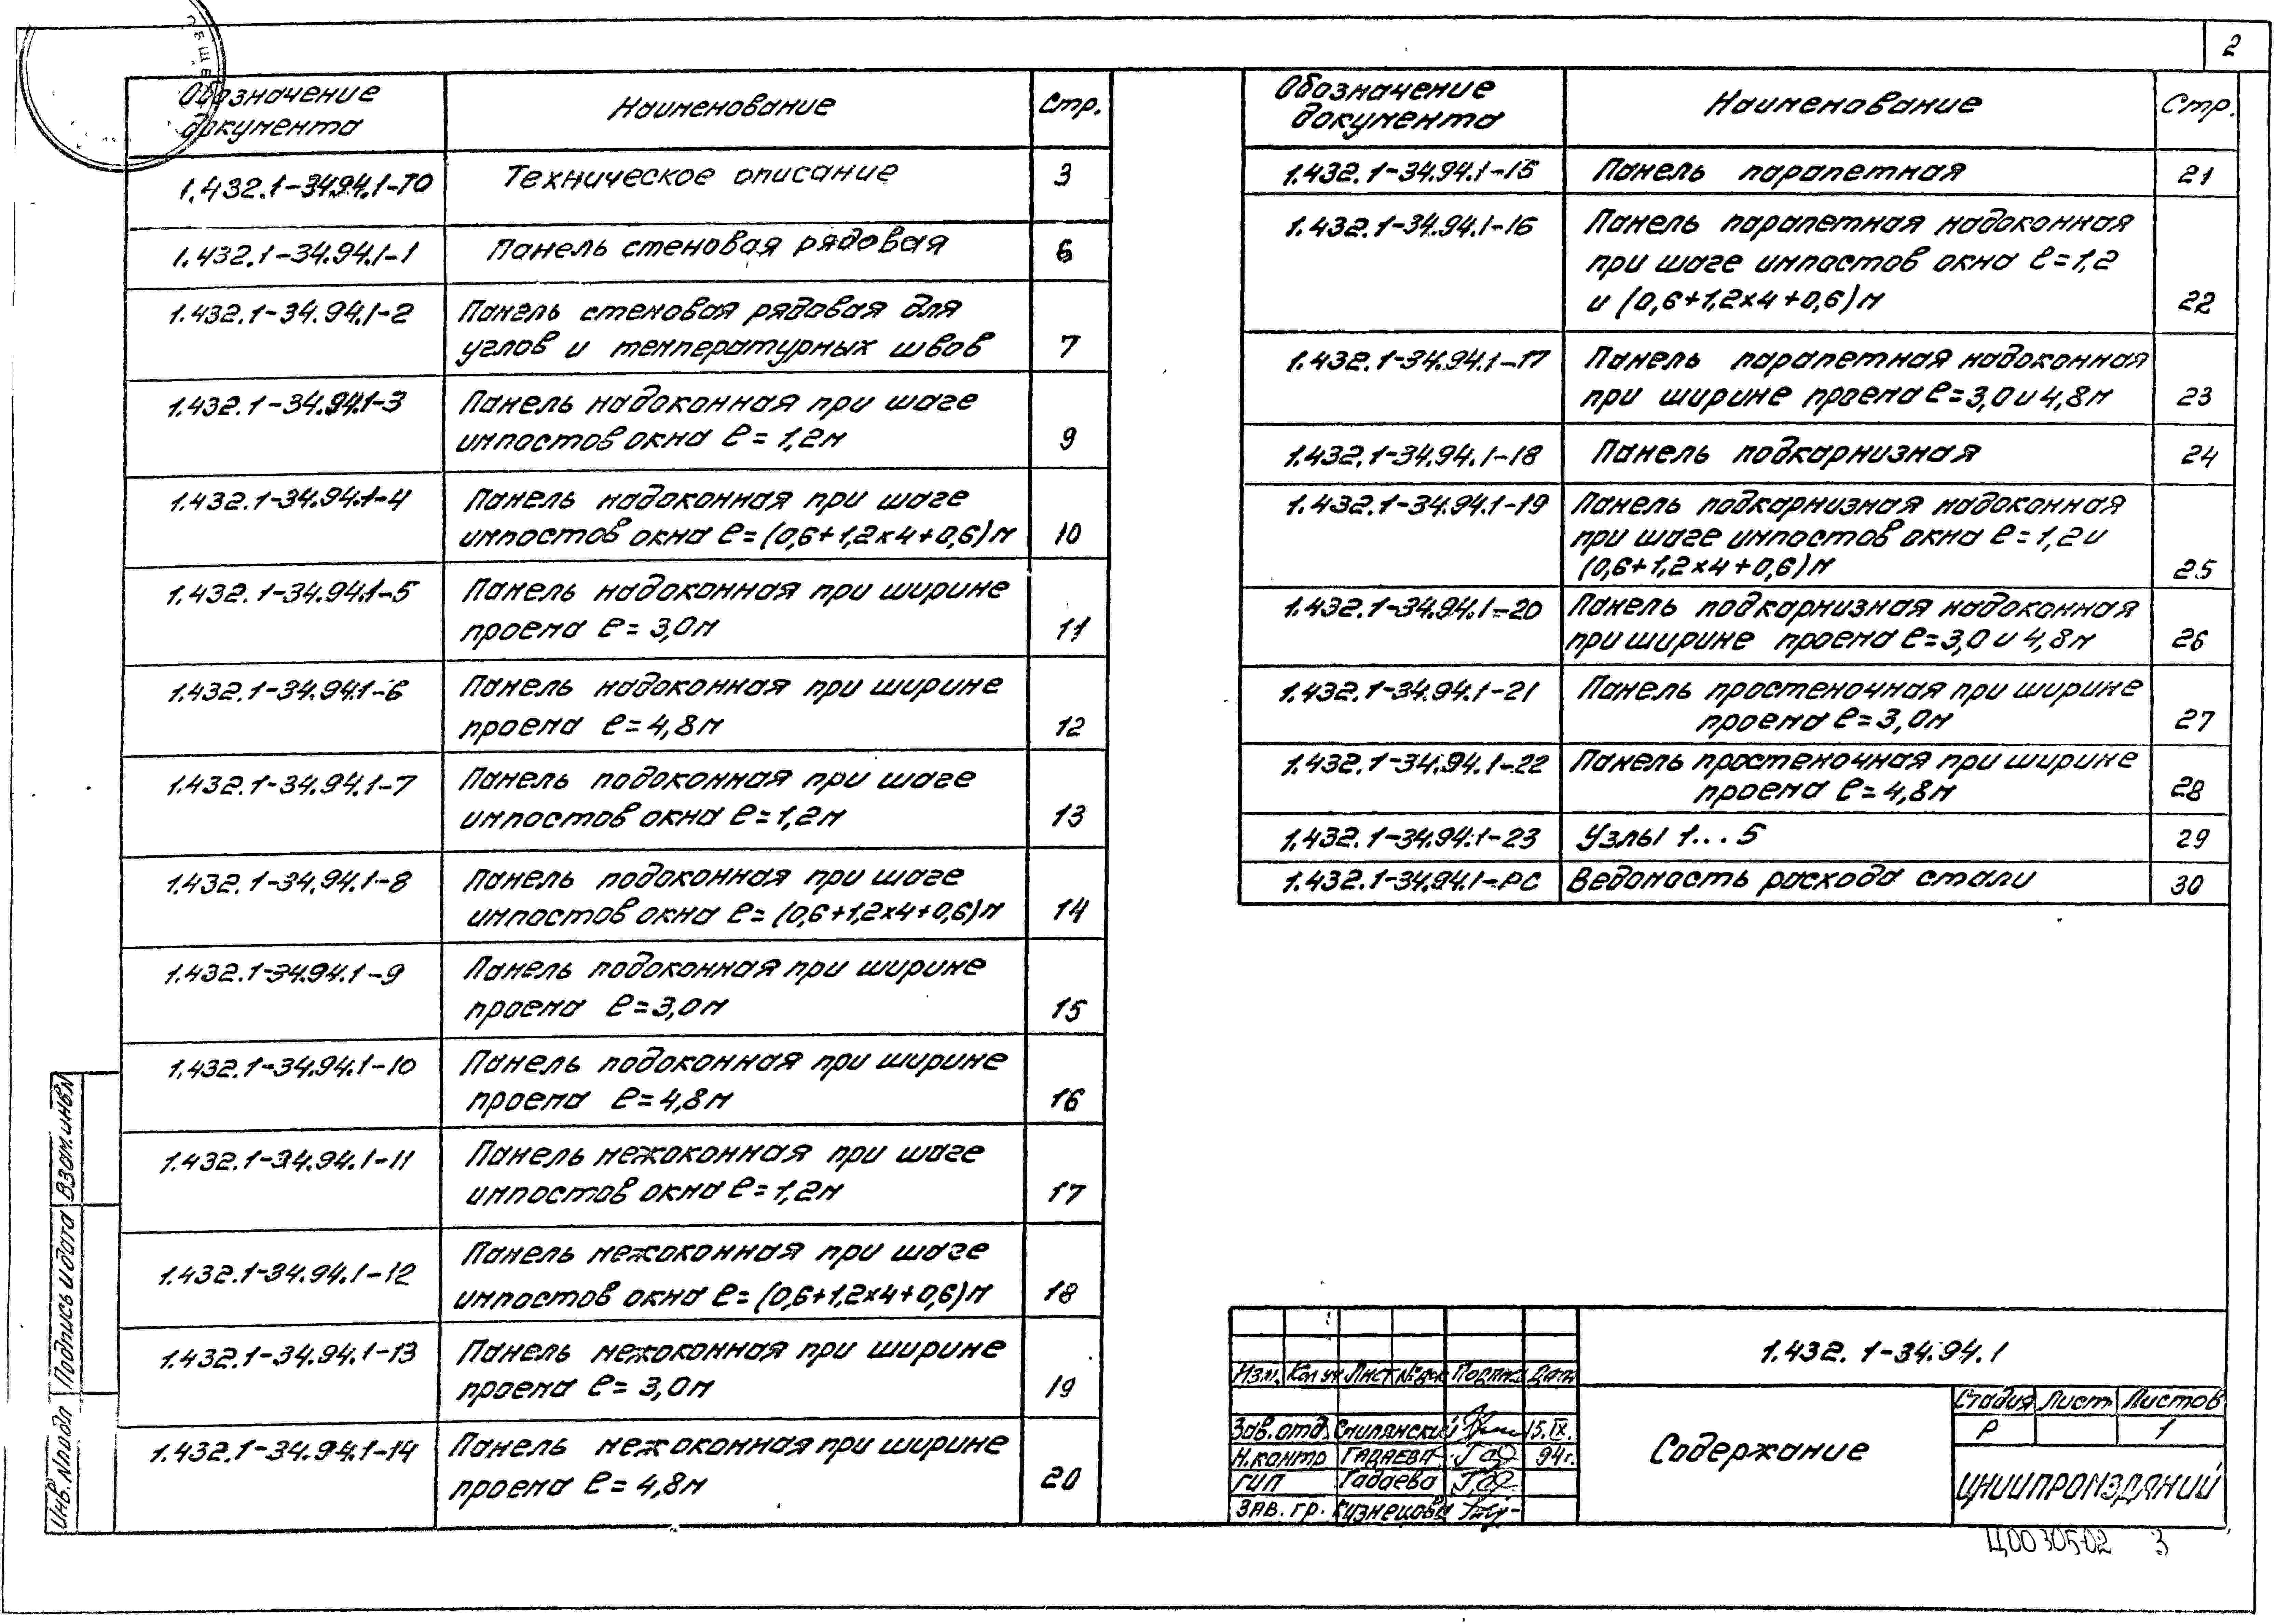 2
Обозначение
документа
Наименование
Стр.
1.432.1-34.94.1-ТО
Техническое описание
3
1.432.1-34.94.1-1
Панель стеновая рядовая
6
1.432.1-34.94.1-2
Панель стеновая рядовая для
углов и температурных швов
7
1.432.1-34.94.1-3
Панель надоконная при шаге
импостов окна ℓ=1,2м
9
1.432.1-34.94.1-4
Панель надоконная при шаге
импостов окна ℓ=(0,6+1,2×4+0,6)м
10
1.432.1-34.94.1-5
Панель надоконная при ширине
проема ℓ=3,0м
11
1.432.1-34.94.1-6
Панель надоконная при ширине
проема ℓ=4,8м
12
1.432.1-34.94.1-7
Панель подоконная при шаге
импостов окна ℓ=1,2м
13
1.432.1-34.94.1-8
Панель подоконная при шаге
импостов окна ℓ=(0,6+1,2×4+0,6)м
14
1.432.1-34.94.1-9
Панель подоконная при ширине
проема ℓ=3,0м
15
1.432.1-34.94.1-10
Панель подоконная при ширине
проема ℓ=4,8м
16
1.432.1-34.94.1-11
Панель межоконная при шаге
импостов окна ℓ=1,2м
17
1.432.1-34.94.1-12
Панель межоконная при шаге
импостов окна ℓ=(0,6+1,2×4+0,6)м
18
1.432.1-34.94.1-13
Панель межоконная при ширине
проема ℓ=3,0м
19
1.432.1-34.94.1-14
Панель межоконная при ширине
проема ℓ=4,8м
20
Обозначение
документа
Наименование
Стр.
1.432.1-34.94.1-15
Панель парапетная
21
1.432.1-34.94.1-16
Панель парапетная надоконная
при шаге импостов окна ℓ=1,2
и (0,6+1,2×4+0,6)м
22
1.432.1-34.94.1-17
Панель парапетная надоконная
при ширине проема ℓ=3,0 и 4,8м
23
1.432.1-34.94.1-18
Панель подкарнизная
24
1.432.1-34.94.1-19
Панель подкарнизная надоконная
при шаге импостов окна ℓ=1,2 и
(0,6+1,2×4+0,6)м
25
1.432.1-34.94.1-20
Панель подкарнизная надоконная
при ширине проема ℓ=3,0 и 4,8м
26
1.432.1-34.94.1-21
Панель простеночная при ширине
проема ℓ=3,0м
27
1.432.1-34.94.1-22
Панель простеночная при ширине
проема ℓ=4,8м
28
1.432.1-34.94.1-23
Узлы 1...5
29
1.432.1-34.94.1-РС
Ведомость расхода стали
30
Взам.инв.N
Подпись и дата
Инв.Nподл
1.432.1-34.94.1
Изм. Кол.уч Лист №док Подпись Дата
Зав.отд. Смилянский 15.IX.
Н.контр Гадаева 94г.
ГИП Гадаева
Зав.гр. Кузнецова
Содержание
Стадия Лист Листов
Р 1
ЦНИИПРОМЗДАНИЙ
Ц00305-02 3